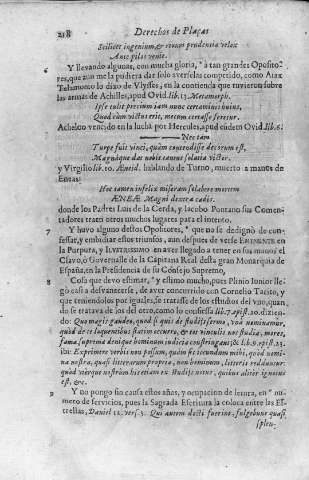 218 Derechos de Plaças
Scilicet ingenium, & rerum prudentia velox
Ante pilos venit.
6 Y llevando algunos, con mucha gloria, à tan grandes Oposito-
res, que aun me la pudiera dar solo averselas competido, como Aiax
Telamonio lo dixo de Vlysses, en la contienda que tuvieron sobre
las armas de Achilles, apud Ovid. lib. 13. Metamorph.
Ipse tulit precium iam nunc certaminis huius,
Quod cum victus erit, mecum certasse feretur.
Acheloo vencido en la lucha por Hercules, apud eundem Ovid. lib. 9.
Nec tam
Turpe fuit vinci, quàm contendisse decorum est,
Magnáque dat nobis tantus solatia victor.
y Virgilio lib. 10. Æneid. hablando de Turno, muerto à manos de
Eneas:
Hoc tamen infelix miseram solabere mortem
ÆNEÆ Magni dextra cadis.
donde los Padres Luis de la Cerda, y Iacobo Pontano sus Comen-
tadores traen otros muchos lugares para el intento.
7 Y huvo alguno destos Opositores, que no se dedignò de con-
fessar, y embidiar estos triunfos, aun despues de verse EMINENTE en
la Purpura, y ILVSTRISSIMO en aver llegado à tener en sus manos el
Clavo, ò Governalle de la Capitana Real desta gran Monarquia de
España, en la Presidencia de su Consejo Supremo,
8 Cosa que devo estimar, y estimo mucho, pues Plinio Iunior lle-
gò casi a desvanecerse, de aver concurrido con Cornelio Tacito, y
que teniendolos por iguales, se tratasse de los estudios del vno, quan-
do se tratava de los del otro, como lo confiessa lib. 7. epist. 20. dizien-
do: Quo magis gaudeo, quod si quis de studijs sermo, vna nominamur,
quòd de te loquentibus statim occurro, & c.
fama, suprema denique hominum iudicia constringant; & lib. 9. epist. 23.
ibi: Exprimere verbis non possum, quàm sit iucundum mihi, quòd nomi-
na nostra, quasi litterarum propria, non hominum, litteris redduntur
quòd vterque nostrûm his etiam ex studijs notus, quibus aliter ignotus
est, &c.
9 Y no pongo sin causa estos años, y ocupacion de letura, en nu-
mero de servicios, pues la Sagrada Escritura la coloca entre las Es-
trellas, Daniel 12. vers. 3. Qui autem docti fuerint, fulgebunt quasi
splen-